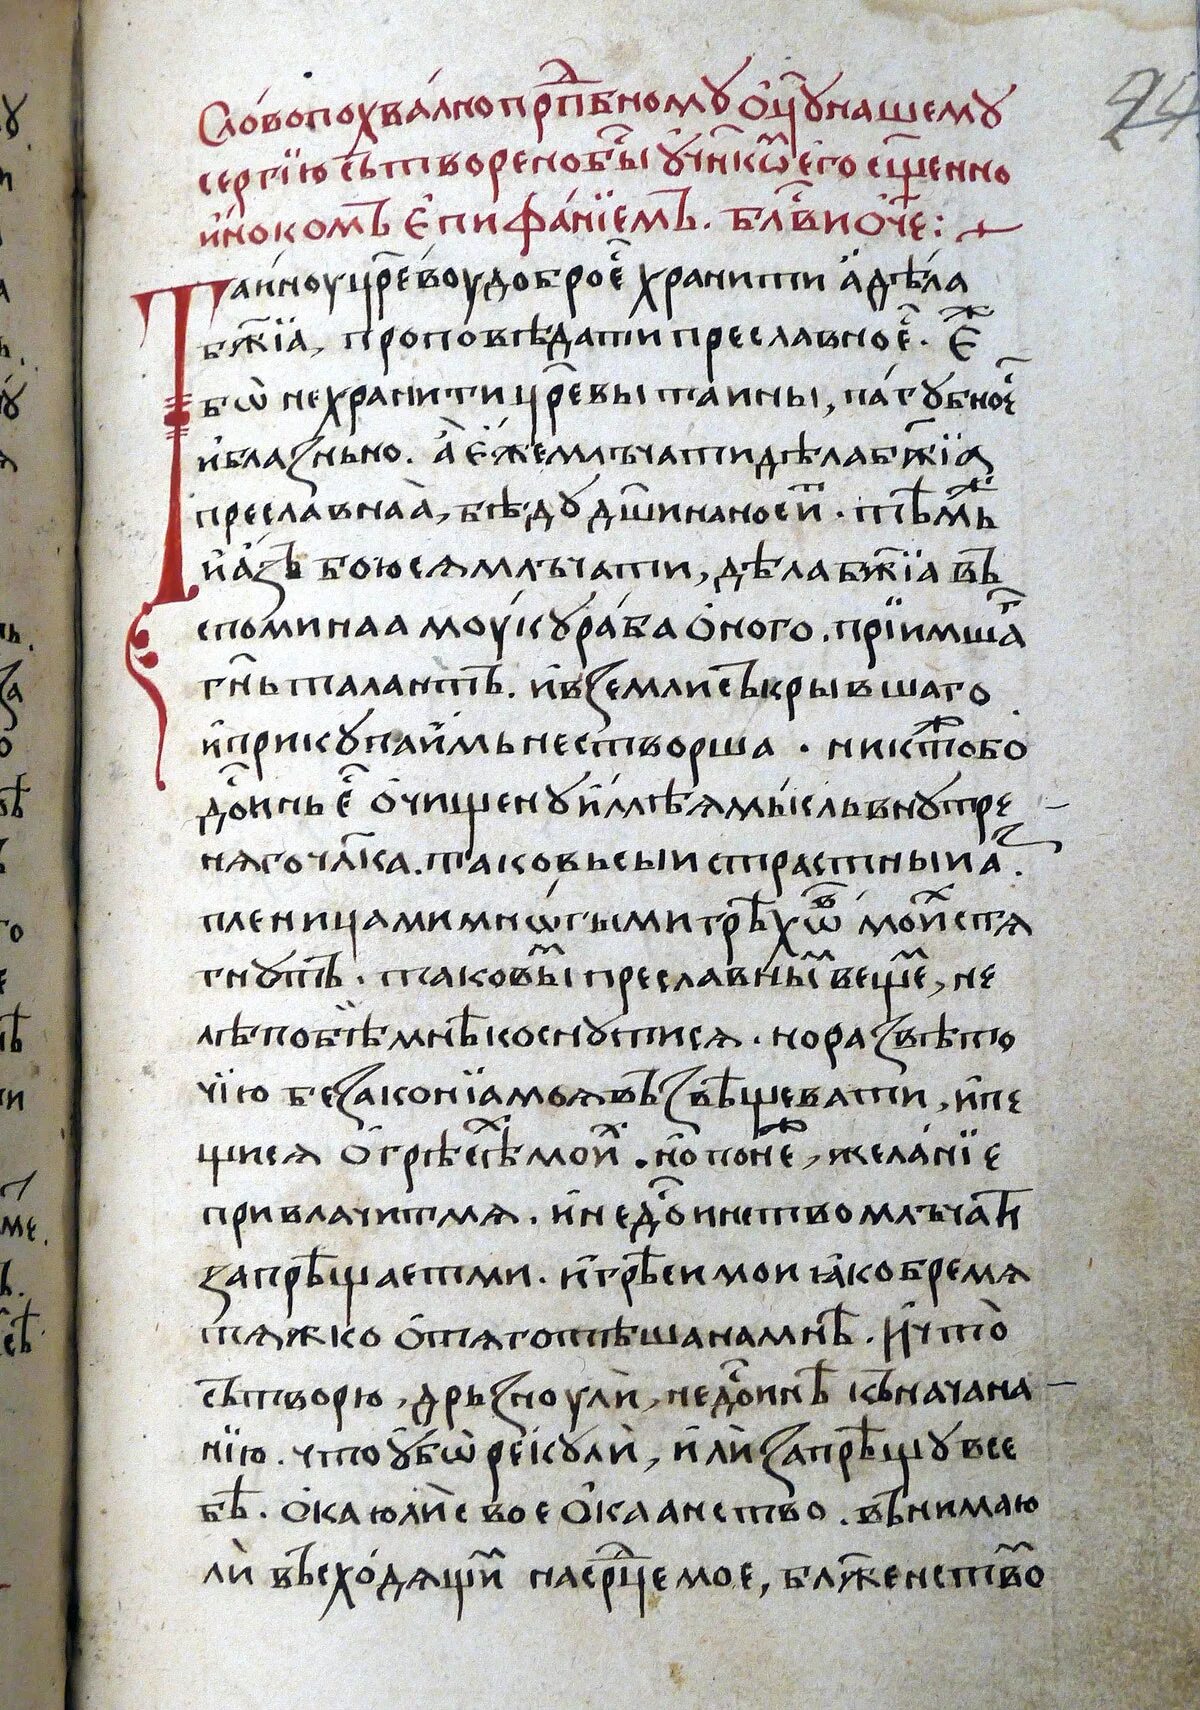 Сло́вопохва́лно прⷣпбномꙋ ѻ҆ц҃ꙋ нашемꙋ
сергїю сътворено бы́ⷭ ѹ҆ч҃нкѡⷨ его сщ҃енно
и҆нокомъ є҆пифа́нїемъ. бл҃ви ѻ҆́че:
Таи́ноу цр҃е́воу доброеⷭ҇ храни́ти а҆ дѣ́ла
бж҃їа, проповѣ́дати преславноеⷭ҇. Е҆ⷤ
бѡ̀ не хранити цр҃евы таины, пагꙋбноⷭ҇
и҆ блазньно. а҆ є҆́же млъчати дѣла бж҃їа
преславнаа̀, бѣдꙋ дш҃и наноситⷮ. тѣⷨже
и҆ а҆зъ боюся млъчати, дѣла бж҃їа въ
споминаа мꙋ́кꙋ раба ѻ҆ного. прїимшаⷢ
гн҃ь талантъ. и҆ в земли съкрывшаго
и҆ прикꙋпа и҆мь не створша. никтоⷤ бо
дⷭ҇оинь еⷭ҇ ѻ҆чищенꙋ и҆мѣя мы́сль внꙋтре
няго чл҃ка. таковь сыи страстныиⷨ а.
пленицами мнѡ́гыми грѣхѡⷡ моиⷯ стя
гнꙋтъ. таковыⷨ преславныⷨ вещеⷨ, не
лѣпо бѣ̀ мнѣ коснꙋтися. но развѣ то
чїю безаконїа моя въ звѣщевати, и҆ пе
щися ѻ҆ грѣсѣⷯ моиⷯ. но понеⷤ, жела́нїе
привлачитмя. и҆ недⷭ҇оинство млъчатⷩ
запрѣщает ми. и҆ грѣси мои ꙗ҆ко бремя
тяжко ѻ҆тяготѣша на мнѣ. И҆ что̀
сътворю, дръзноу ли, недⷭ҇оинъ къ нача на
нїю. что ѹ҆бѡ̀ рекꙋ ли, и҆ли запрѣщꙋ в се
бѣ. ѻ҆каю ли свое ѻ҆каанство. вънимаю
ли въсходящиⷨ на ср҃це мое, блж҃енстⷡо